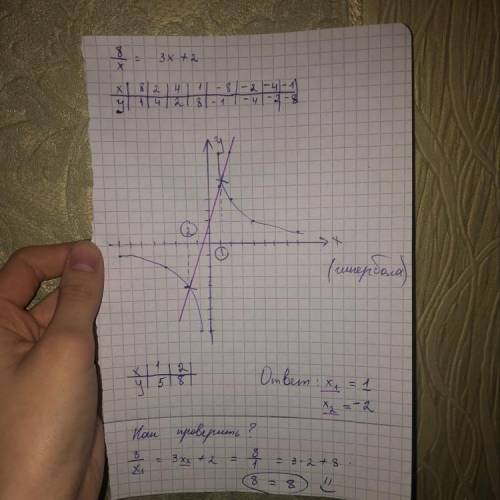 8/x = 3x + 2
x | 8 | 2 | 4 | 1 | -8 | -2 | -4 | -1
y | 1 | 4 | 2 | 8 | -1 | -4 | -2 | -8
y
②
x
①
(гипербола)
x | 1 | 2
y | 5 | 8
Ответ: x₁ = 1
x₂ = -2
Как проверить?
8/x₁ = 3x₂ + 2 = 8/1 = 3·2+8.
8 = 8